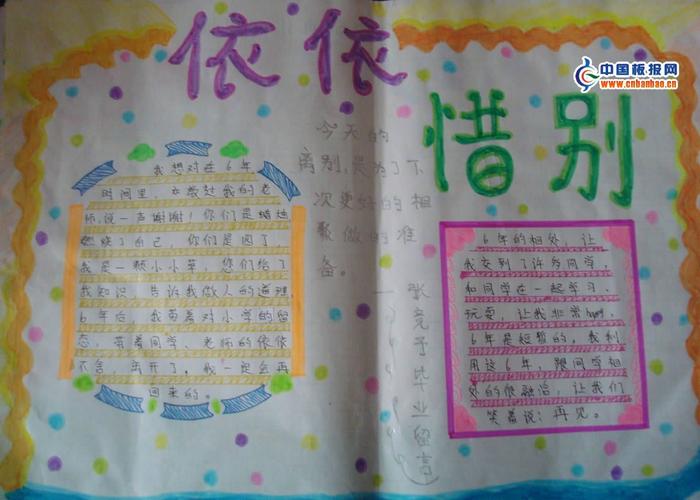 依依
惜别
中国板报网
www.cnbanbao.cn
今天的
离别,是为了下
次更好的相
聚做的准
备。
——张竞予毕业留言
我想对在6年
时间里,立教过我的老
师,说一声谢谢!你们是蜡烛
燃烧了自己,你们是园丁
我是一颗小小草,您们给了
我知识,告诉我做人的道理
6年后,我带着对小学的留
恋,带着同学、老师的依依
不舍,离开了。我一定会再
回来的。
6年的相处,让
我交到了许多同学,
和同学在一起学习、
玩耍,让我非常happy。
6年是短暂的,我利
用这6年,跟同学相
处的很融洽,让我们
笑着说:再见。